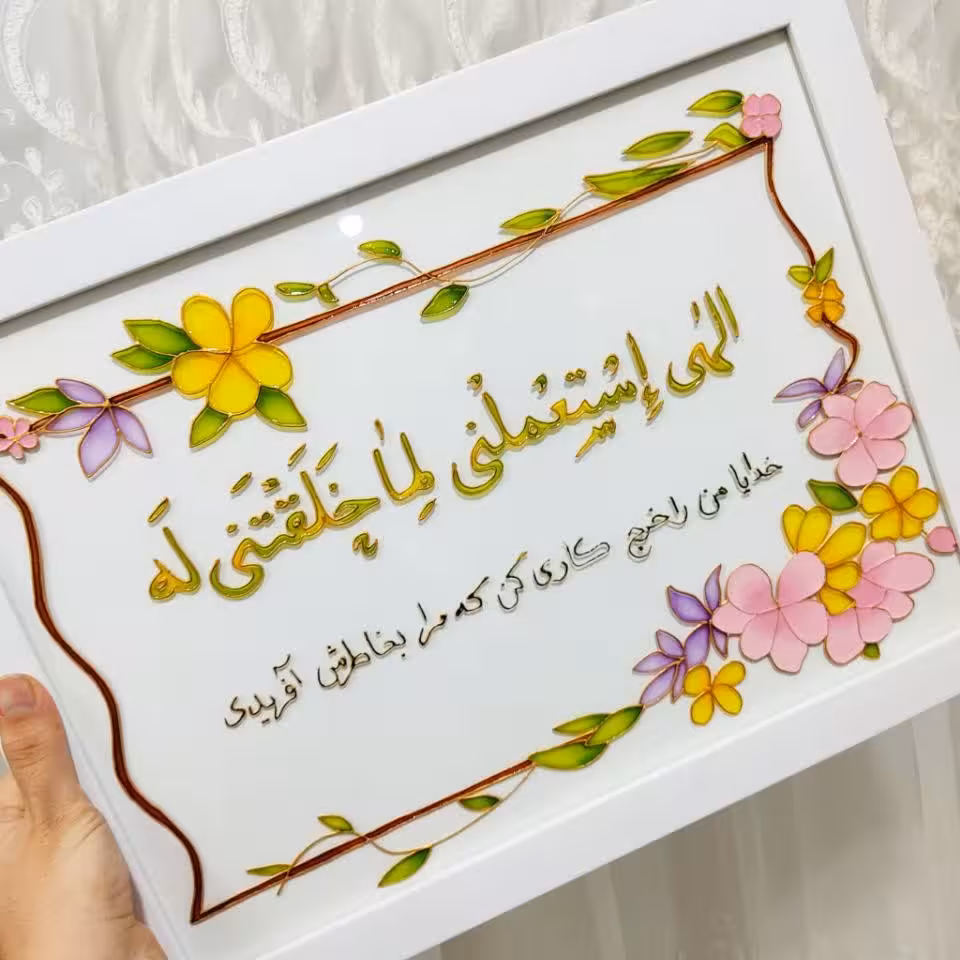 الهٰی إِسْتِعْمِلْنی لِمٰا خَلَقْتَنی لَه
خدایا من را خرج کاری کن که مرا بخاطرش آفریدی